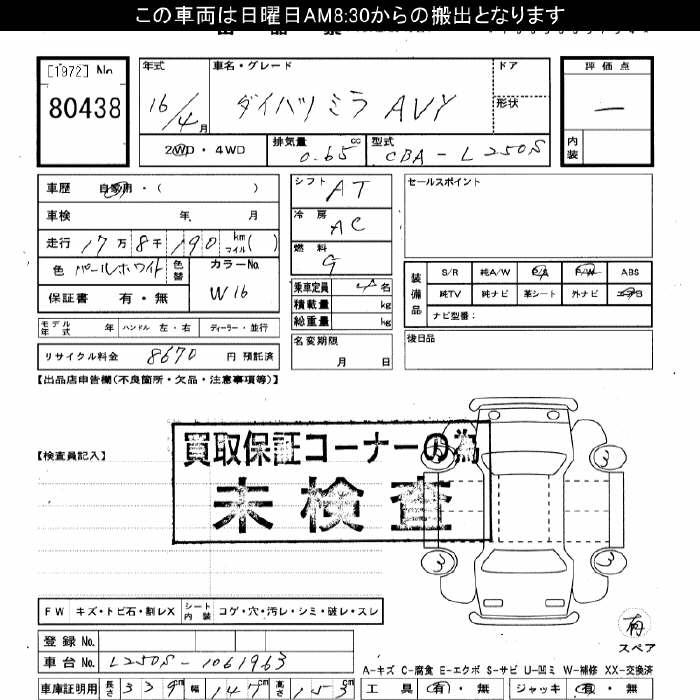 この車両は日曜日AM8:30からの搬出となります
[1972] No
80438
年式 車名・グレード ドア 評価点
16/4月 ダイハツミラ AVY 形状 —
内装
2WD・4WD 排気量 0.65 cc 型式 CBA-L250S
車歴 自家用・( )
車検 年 月
走行 17万8千190 km マイル( )
色 パールホワイト 色替 カラーNo. W16
保証書 有・無
シフト AT
冷房 AC
燃料 G
乗車定員 4名
積載量 kg
総重量 kg
セールスポイント
装備品 S/R 純A/W P/S P/W ABS
純TV 純ナビ 革シート 外ナビ
ナビ型番:
モデル年式 年 ハンドル 左・右 ディーラー・並行
名変期限 月 日
後日品
リサイクル料金 8670 円 預託済
【出品店申告欄(不良箇所・欠品・注意事項等)】
【検査員記入】
買取保証コーナーの為
未検査
3
3
3
FW キズ・トビ石・割レX シート内装 コゲ・穴・汚レ・シミ・破レ・スレ
有
スペア
登録 No.
車台 No. L250S-1061963
A-キズ C-腐食 E-エクボ S-サビ U-凹ミ W-補修 XX-交換済
車庫証明用 長さ 339cm 幅 147cm 高さ 153cm
工具 有・無 ジャッキ 有・無